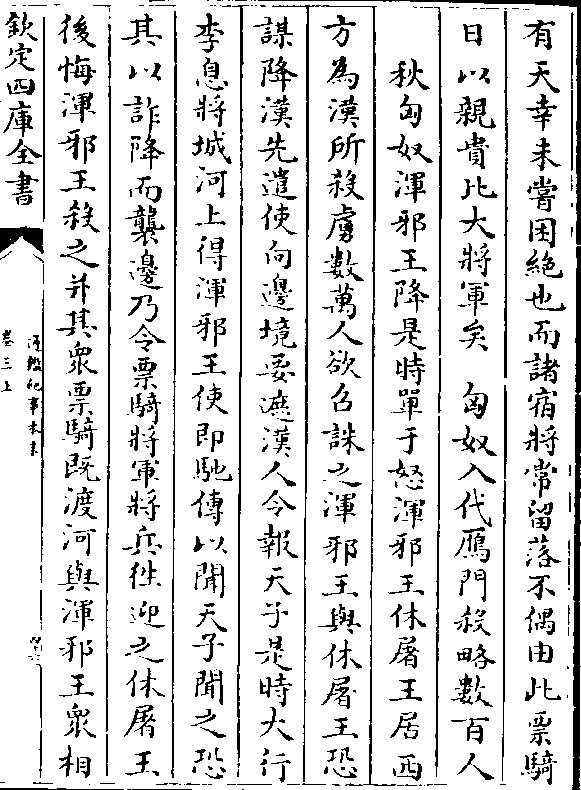 有天幸未嘗困絶也而諸宿將常留落不偶由此票騎
日以親貴比大將軍矣 匈奴入代鴈門殺略數百人
秋匈奴渾邪王降是時單于怒渾邪王休屠王居西
方為漢所殺虜數萬人欲召誅之渾邪王與休屠王恐
謀降漢先遣使向邊境要遮漢人令報天子是時大行
李息將城河上得渾邪王使即馳傳以聞天子聞之恐
其以詐降而襲邊乃令票騎將軍將兵往迎之休屠王
後悔渾邪王殺之并其衆票騎既渡河與渾邪王衆相
欽定四庫全書
通鑑紀事本末
卷三上